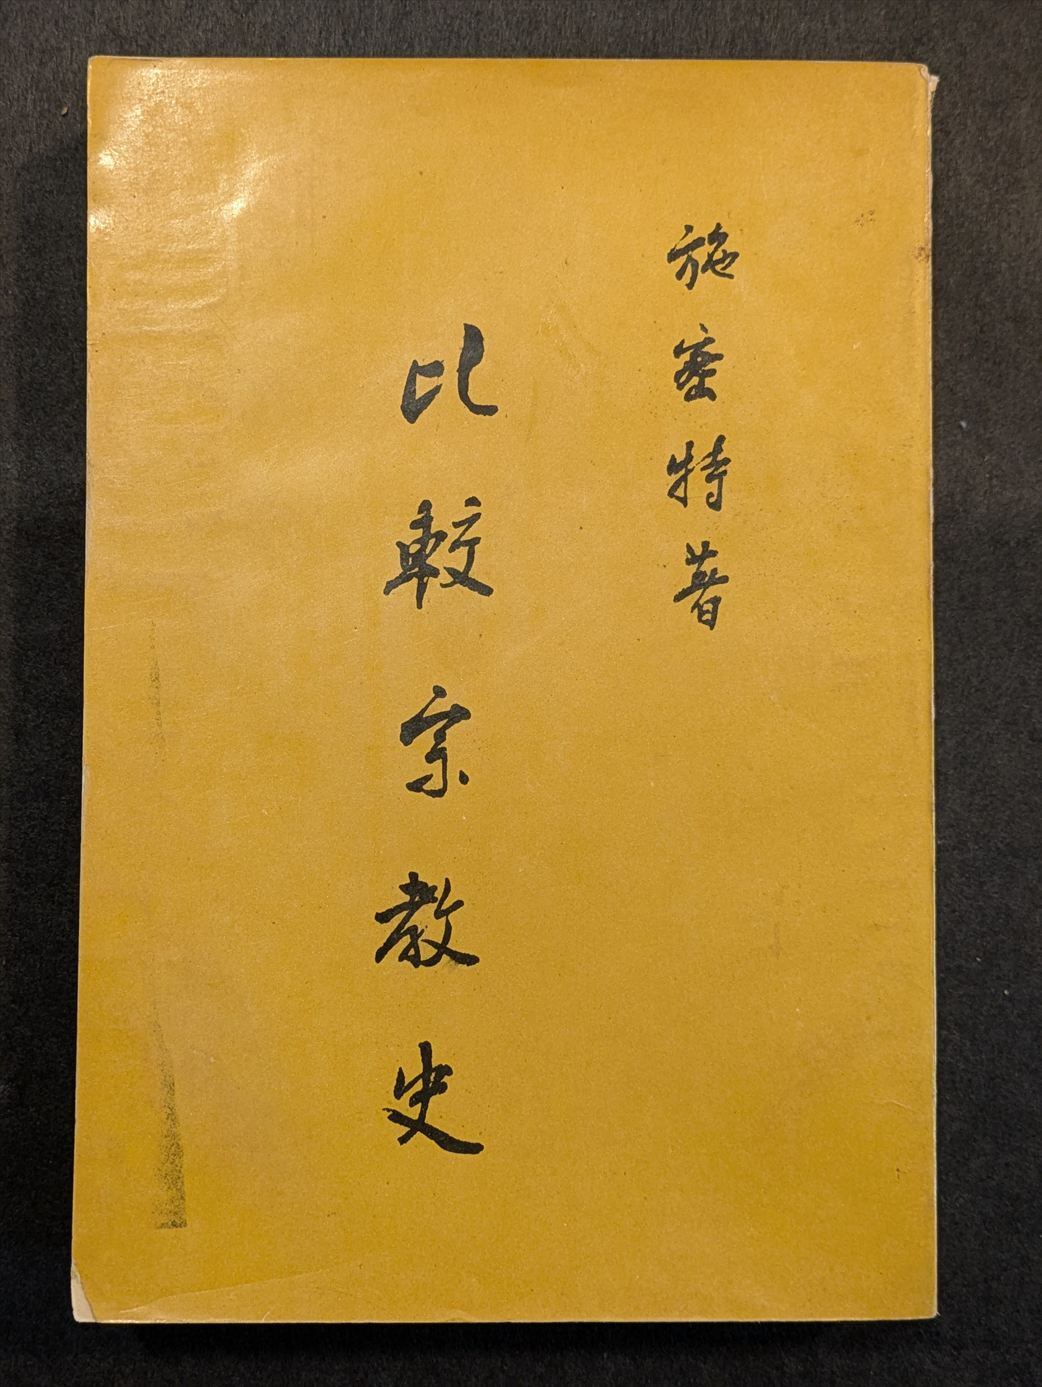 施密特著
比較宗教史